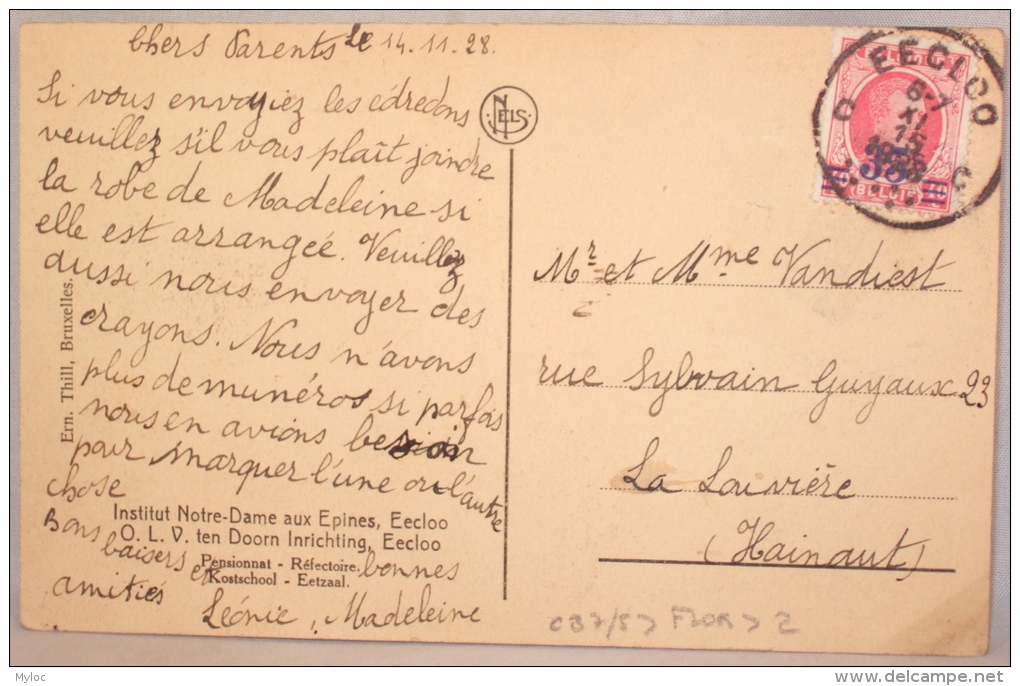 Chers Parents Le 14.11.28.
Si vous envoyiez les edredons
veuillez s'il vous plaît joindre
la robe de Madeleine si
elle est arrangée. Veuillez
aussi nous envoyer des
crayons. Nous n'avons
plus de munéros si parfois
nous en avions besoin
pour marquer l'une ou l'autre
chose
Bons baisers et bonnes
amitiés
Léonie, Madeleine
Institut Notre-Dame aux Epines, Eecloo
O. L. V. ten Doorn Inrichting, Eecloo
Pensionnat - Réfectoire.
Kostschool - Eetzaal.
Ern. Thill, Bruxelles.
NELS
EECLOO
6-7
XI
15
1928
C C
35
BELGIE
Mr et Mme Vandiest
rue Sylvain Guyaux 23
La Louvière
(Hainaut)
FLOR > 2
Myloc
delcampe.net